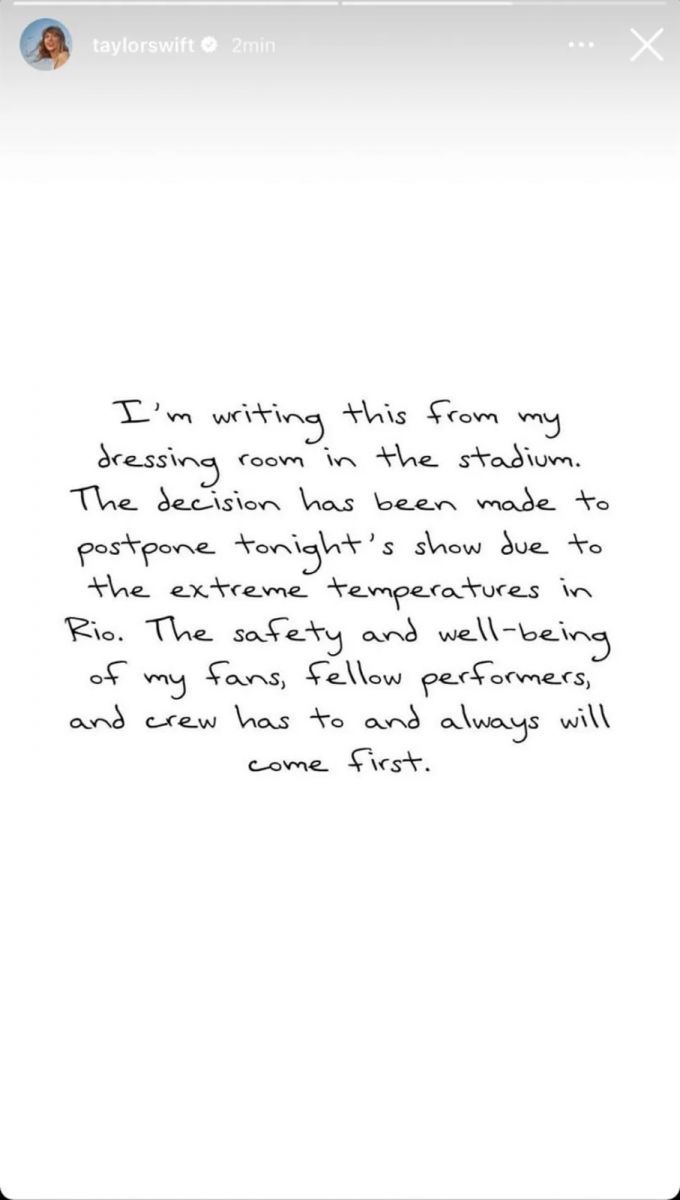 taylorswift 2min
I'm writing this from my
dressing room in the stadium.
The decision has been made to
postpone tonight's show due to
the extreme temperatures in
Rio. The safety and well-being
of my fans, fellow performers,
and crew has to and always will
come first.